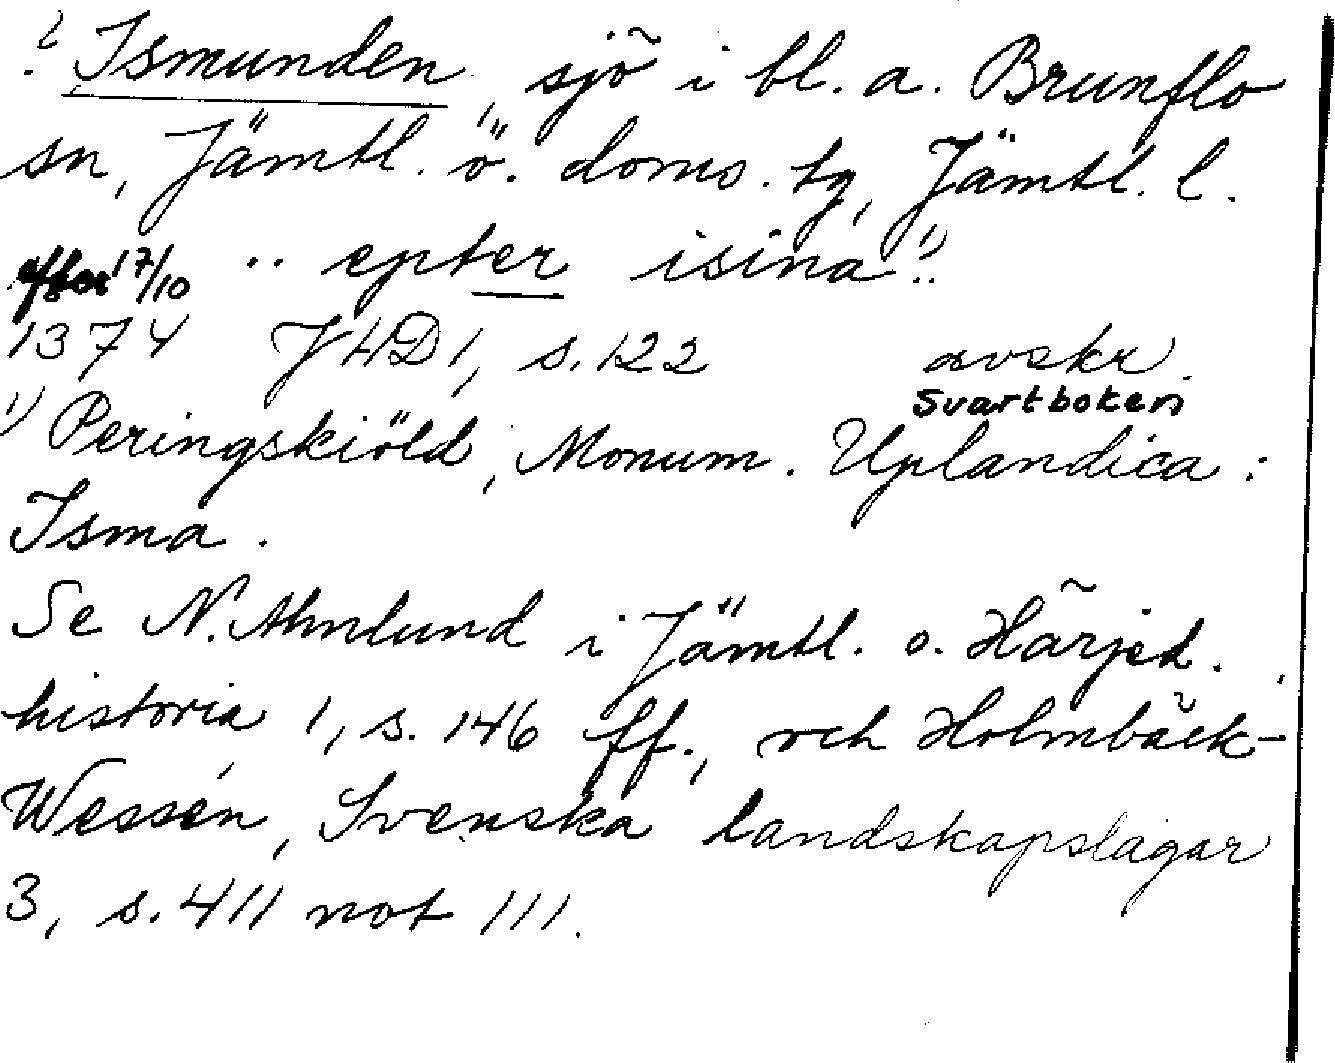 ? Ismunden, sjö i bl. a. Brunflo
sn, Jämtl. ö. doms. tg, Jämtl. l.
efter 17/10 .. epter isina 1) ..
1374 JHD 1, s. 122 avskr.
Svartboken
1) Peringskiöld, Monum. Uplandica:
Isma.
Se N. Ahnlund i Jämtl. o. Härjed.
historia 1, s. 146 ff., och Holmbäck-
Wessén, Svenska landskapslagar
3, s. 411 not 111.